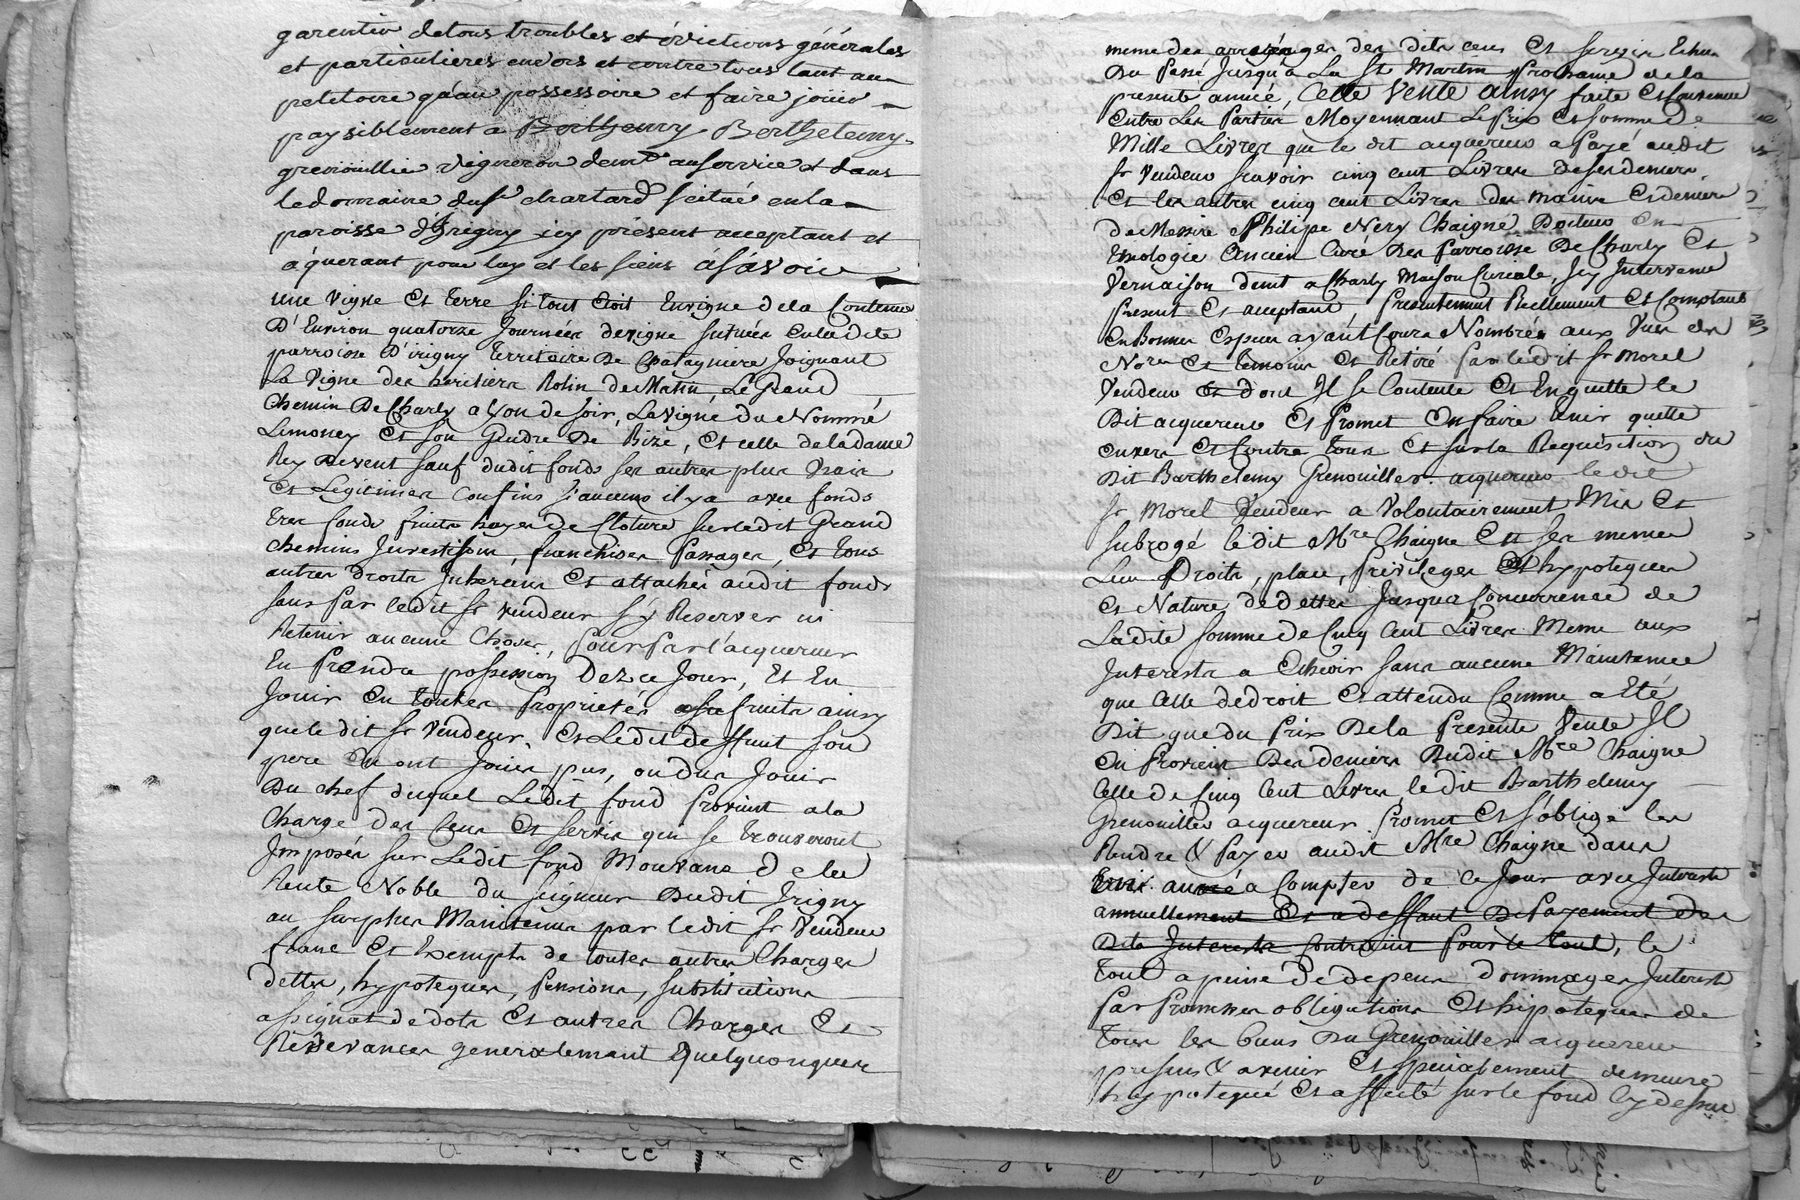 garentir de tous troubles et évictions générales
et particulieres envers et contre tous tant au
petitoire qu'au possessoire et faire jouir
paysiblement a Berthemy Berthelemy
grenouillie vigneron demt au service et dans
le domaine du sr chartard scitué en la
paroisse d'Irigny icy présent acceptant et
aquerant pour luy et les siens ásávoir
une vigne et terre si tout étoit Envigne de la Contenue
D'Environ quatorze Journées de vigne située en la dite
parroisse D'irigny territoire De Joignant
La Vigne des heritiers Rolin de Matin, Le Grand
Chemin De Charly a Lyon de soir, La vigne du Nommé
Limoney et son Gendre De Bize, et celle de la dame
Rey de vent sauf dudit fond ses autres plus Vrais
et Legitimes Confins s'aucuns il y a avec fonds
tres fonds fruits hayes de Cloture sur ledit Grand
chemins Juvestisons franchises Passages, et tous
autres droits Inherens et attachés audit fonds
sans par ledit sr vendeur s'y Reserver ni
Retenir aucune Choses, pour par l'acquereur
En Prendre possession Dez ce Jour, Et En
Jouir en toutes Proprietés usufruits ainsy
que le dit sr Vendeur, et Ledit deffunt son
pere En ont Jouis pus, ou dus Jouir
Du chef duquel Ledit fond Provient a la
Charge des Cens et servis qui se trouveront
Imposés sur Ledit fond Mouvans De la
Rente Noble du seigneur Dudit Irigny
au surplus Maintenus par ledit sr Vendeur
franc et Exempts de toutes autres Charges
dettes, hypoteques, Pensions, substitutions
assignat de dots et autres Charges et
Rédevances generalement quelquonques
meme des arrerages des dits cens et servis Echus
Du Passé Jusqu'a La St Martin prochaine de la
presente année, Cette Vente ainsy faite et Convenue
entre Les Parties Moyennant Le Prix et somme de
Mille Livres que le dit acquereur a Payé audit
sr Vendeur scavoir cinq cent Livres de ses deniers,
et les autres cinq cent Livres des mains et deniers
de Messire Philipe Nery Chaigne Docteur en
Teologie Ancien Curé Des Parroisse De Charly Et
Vernaison demt a Charly Maison Curiale, Icy Intervenu
Present et acceptant, Presentement Reellement et Comptant
en Bonnes Especes ayant Cours Nombrées aux Vues des
Nores et temoins et Retiré par ledit sr Morel
Vendeur et dont Il se Contente et En quitte le
Dit acquereur et Promet en faire tenir quitte
envers et Contre tous et sur la Requisition du
Dit Barthelemy Grenouilles acquereur ledit
sr Morel Vendeur a Volontairement Mis et
subrogé ledit Mre Chaigne en ses memes
Lieu Droits, place, Privileges et hypoteques
et Nature de dettes Jusqua Concurrence de
Ladite somme de Cinq Cent Livres Meme aux
Interests a Echeoir sans aucune Maintenue
que Celle de droit et attendu Comme a Eté
Dit que du Prix De la Presente Vente Il
En Provient Des deniers Dudit Mre Chaigne
Celle de Cinq Cent Livres le dit Barthelemy
Grenouilles acquereur Promet et s'oblige les
Rendre & Payer audit Mre Chaigne dans
a Compter de ce Jour avec Interests
annuellement Et a deffaut De Payement des
Dits Interests Contraint Pour le tout, le
tout a peine de depens dommages Interests
par Promesses obligations et hipoteques de
tous les biens Du Grenouilles acquereur
presens & avenir et specialement demeure
hypotequé et affecté sur le fond Cy dessus